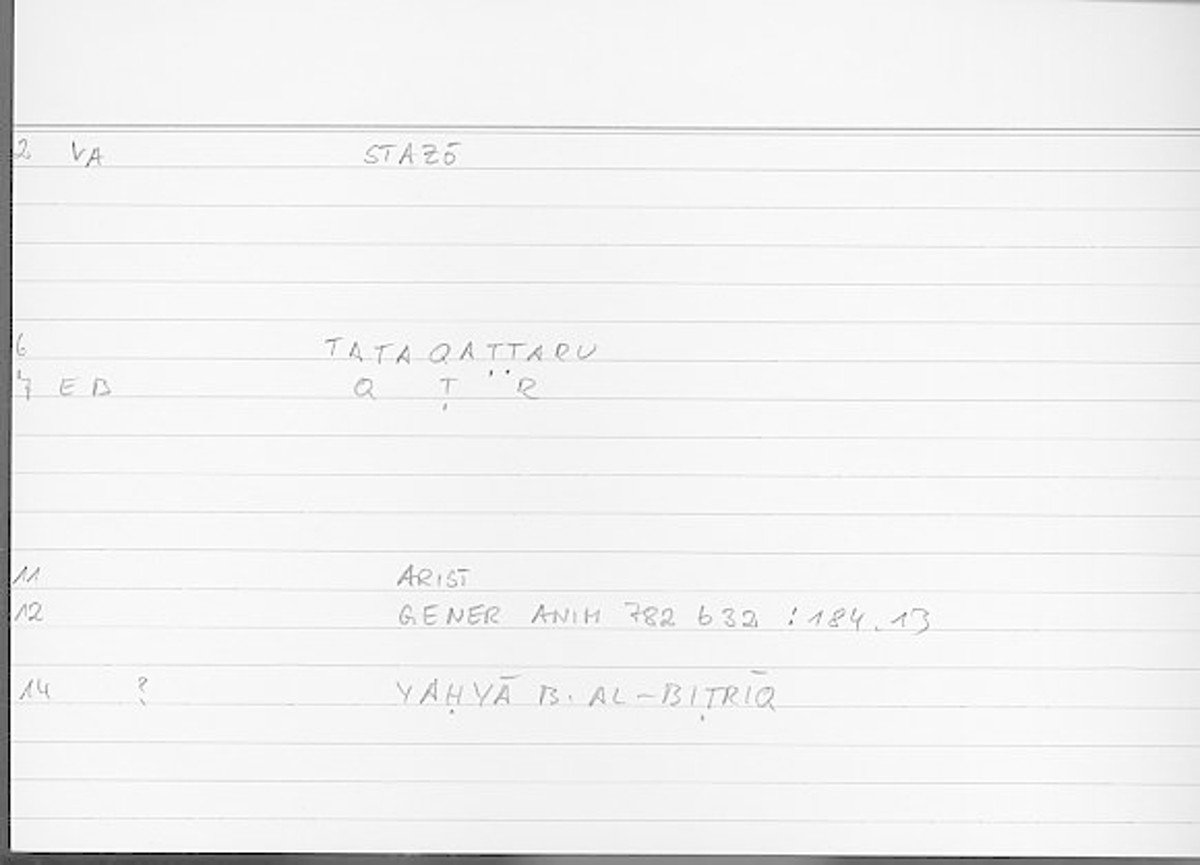 2 VA STAZŌ
6 TATAQAṬṬARU
7 EB Q Ṭ R
11 ARIST
12 GENER ANIM 782 b 32 : 184.13
14 ? YAḤYĀ B. AL-BIṬRĪQ